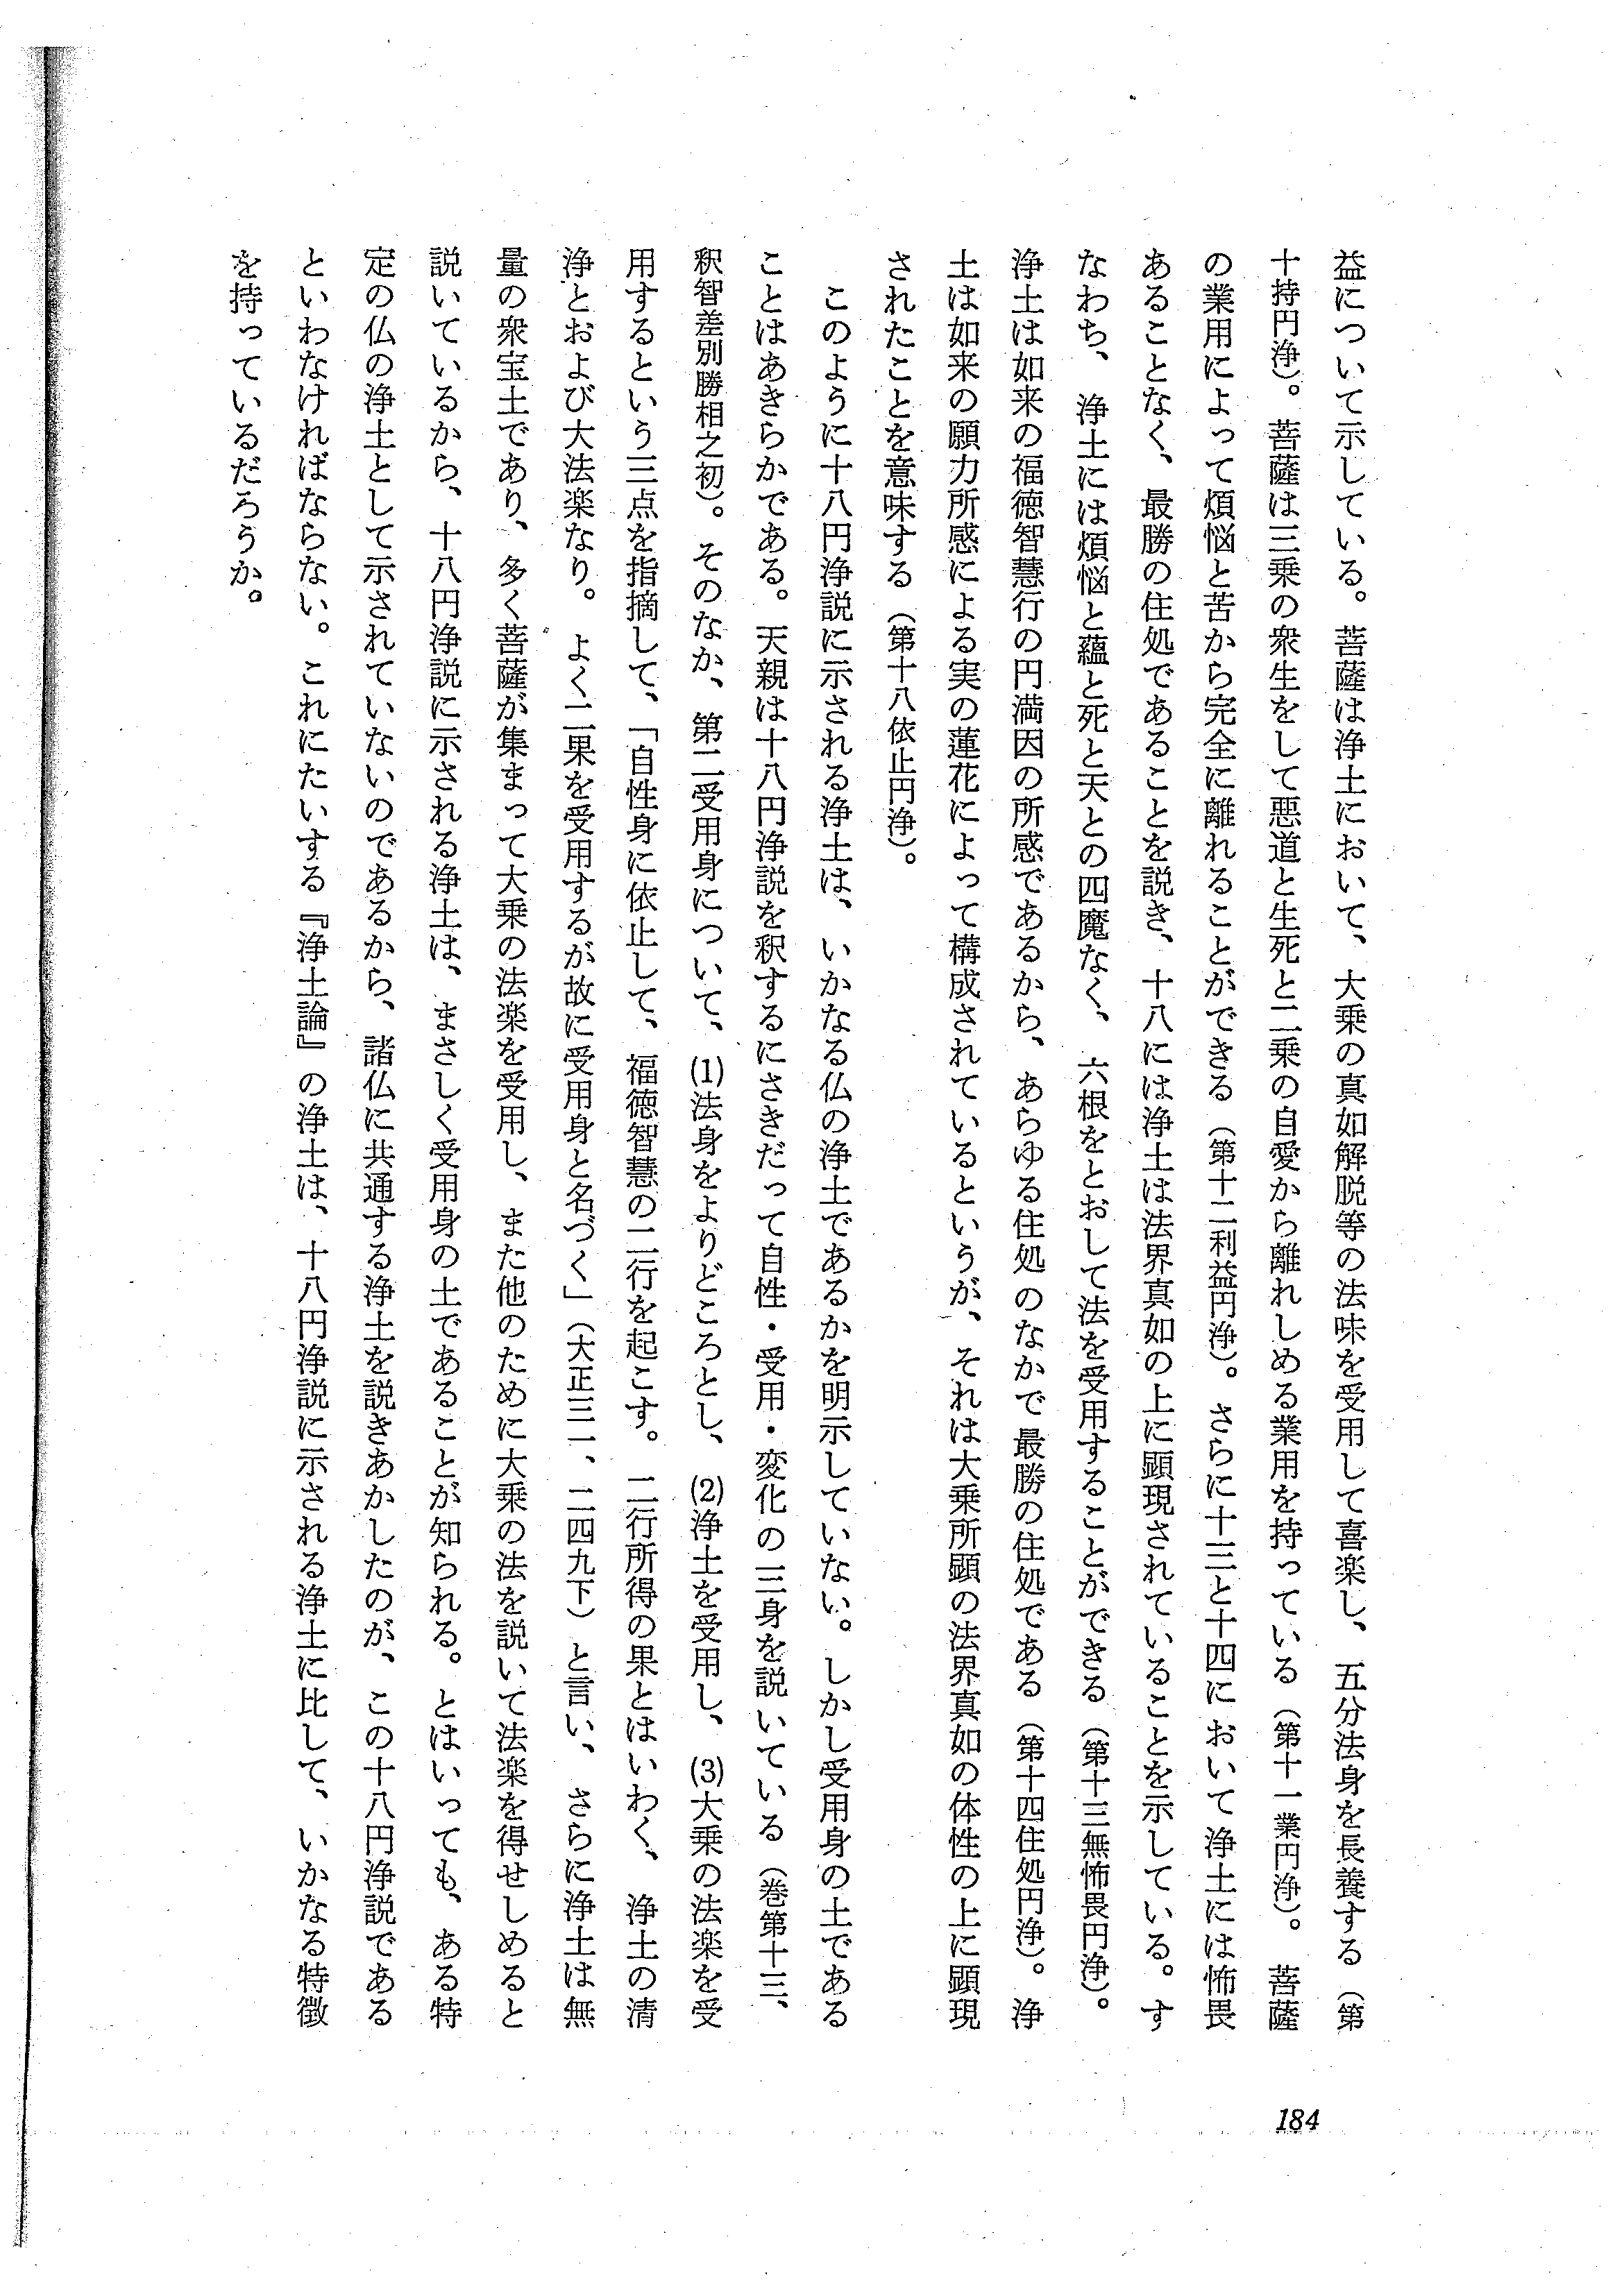 益について示している。菩薩は浄土において、大乗の真如解脱等の法味を受用して喜楽し、五分法身を長養する（第
十持円浄）。菩薩は三乗の衆生をして悪道と生死と二乗の自愛から離れしめる業用を持っている（第十一業円浄）。菩薩
の業用によって煩悩と苦から完全に離れることができる（第十二利益円浄）。さらに十三と十四において浄土には怖畏
あることなく、最勝の住処であることを説き、十八には浄土は法界真如の上に顕現されていることを示している。す
なわち、浄土には煩悩と蘊と死と天との四魔なく、六根をとおして法を受用することができる（第十三無怖畏円浄）。
浄土は如来の福徳智慧行の円満因の所感であるから、あらゆる住処のなかで最勝の住処である（第十四住処円浄）。浄
土は如来の願力所感による実の蓮花によって構成されているというが、それは大乗所顕の法界真如の体性の上に顕現
されたことを意味する（第十八依止円浄）。
このように十八円浄説に示される浄土は、いかなる仏の浄土であるかを明示していない。しかし受用身の土である
ことはあきらかである。天親は十八円浄説を釈するにさきだって自性・受用・変化の三身を説いている（巻第十三、
釈智差別勝相之初）。そのなか、第二受用身について、(1)法身をよりどころとし、(2)浄土を受用し、(3)大乗の法楽を受
用するという三点を指摘して、「自性身に依止して、福徳智慧の二行を起こす。二行所得の果とはいわく、浄土の清
浄とおよび大法楽なり。よく二果を受用するが故に受用身と名づく」（大正三一、二四九下）と言い、さらに浄土は無
量の衆宝土であり、多く菩薩が集まって大乗の法楽を受用し、また他のために大乗の法を説いて法楽を得せしめると
説いているから、十八円浄説に示される浄土は、まさしく受用身の土であることが知られる。とはいっても、ある特
定の仏の浄土として示されていないのであるから、諸仏に共通する浄土を説きあかしたのが、この十八円浄説である
といわなければならない。これにたいする『浄土論』の浄土は、十八円浄説に示される浄土に比して、いかなる特徴
を持っているだろうか。
184